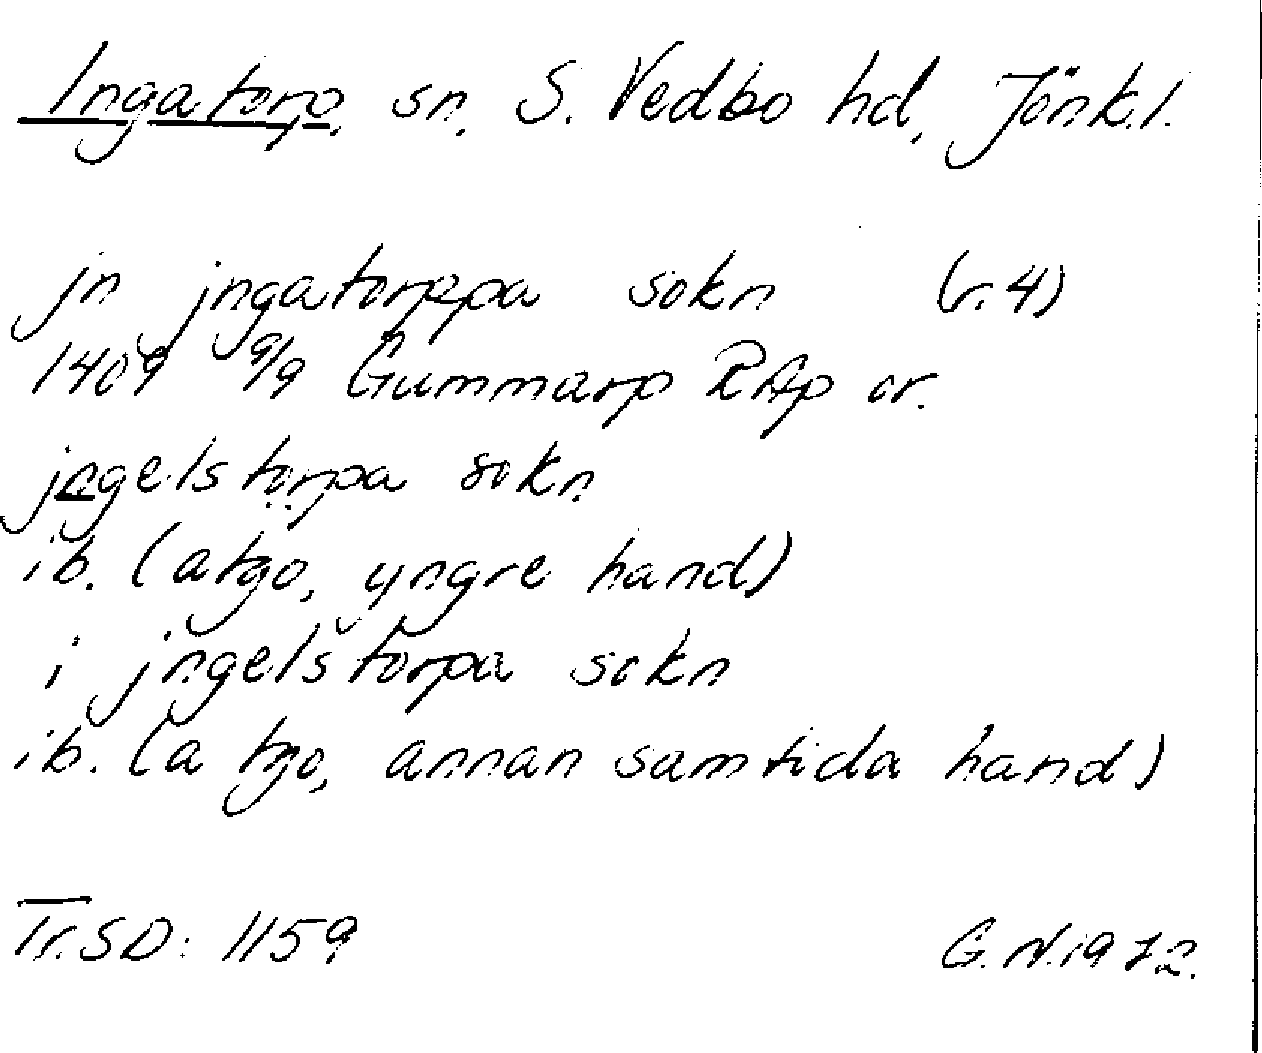 Ingatorp, sn, S. Vedbo hd, Jönk.l.
jn jngatorppa sokn (r. 4)
1409 9/9 Gummarp RAp or.
jngelstorpa sokn
ib. (atgo, yngre hand)
i jngelstorpa sokn
ib. (a tgo, annan samtida hand)
Tr. SD: 1159 G.N. 1972.